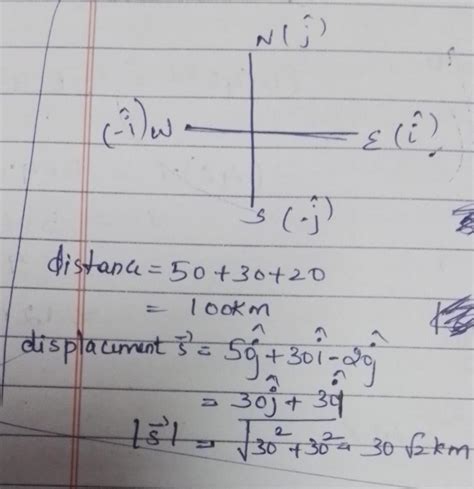 N(ĵ)
(-î)W
E(î)
S(-ĵ)
distance = 50+30+20
= 100km
displacement s⃗ = 50ĵ+30î-20ĵ
= 30ĵ + 30î
|s⃗| = √30²+30² = 30√2 km